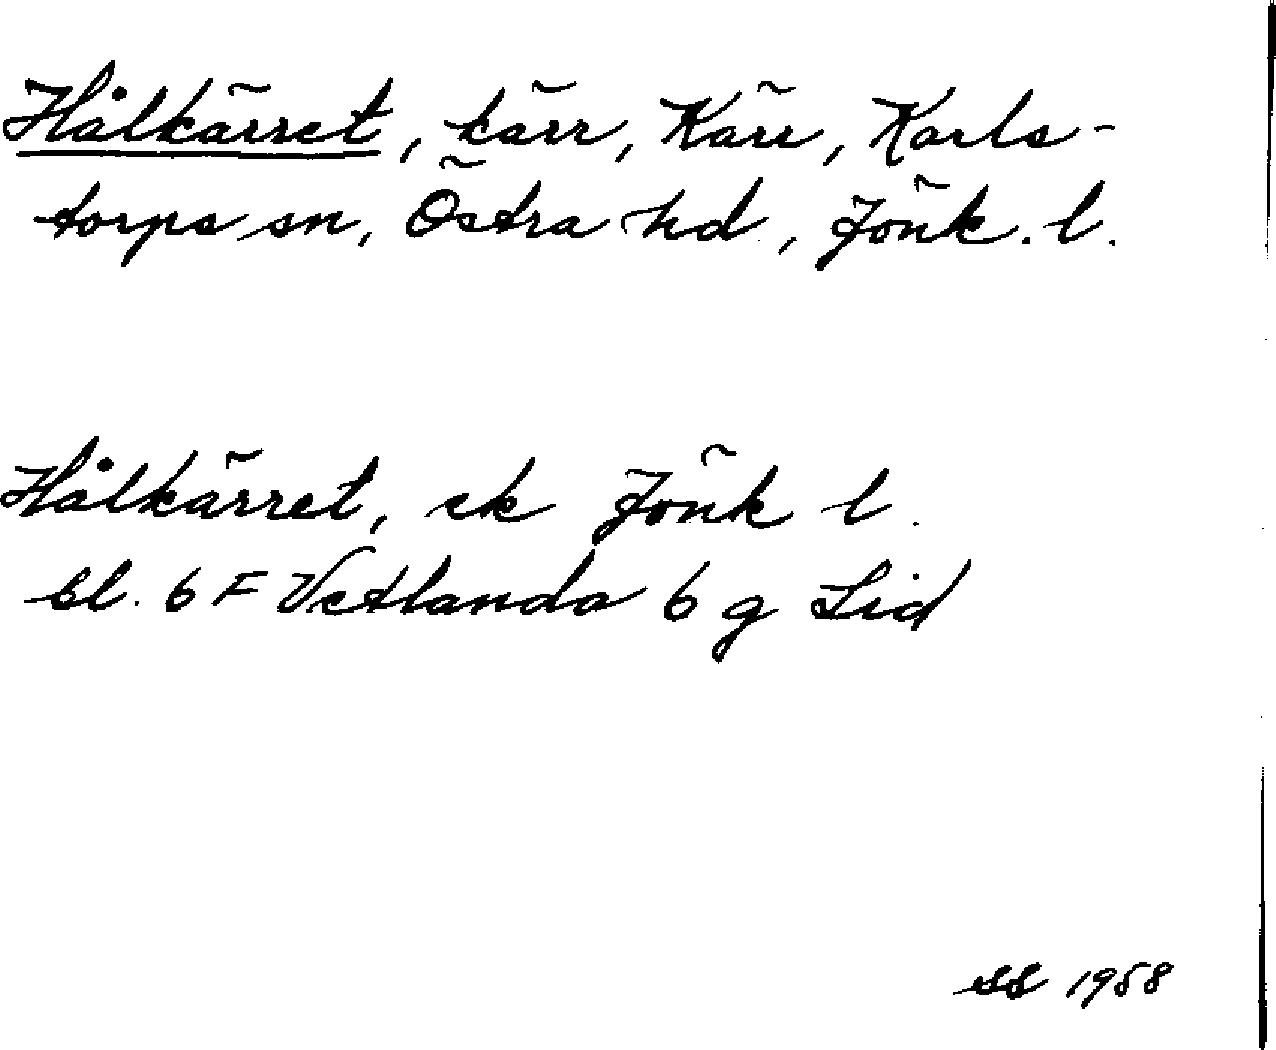 Hålkärret, kärr, Kärr, Karls-
torps sn, Östra hd, Jönk. l.
Hålkärret, ek Jönk l.
bl. 6 F Vetlanda 6 g Lid
SS 1958